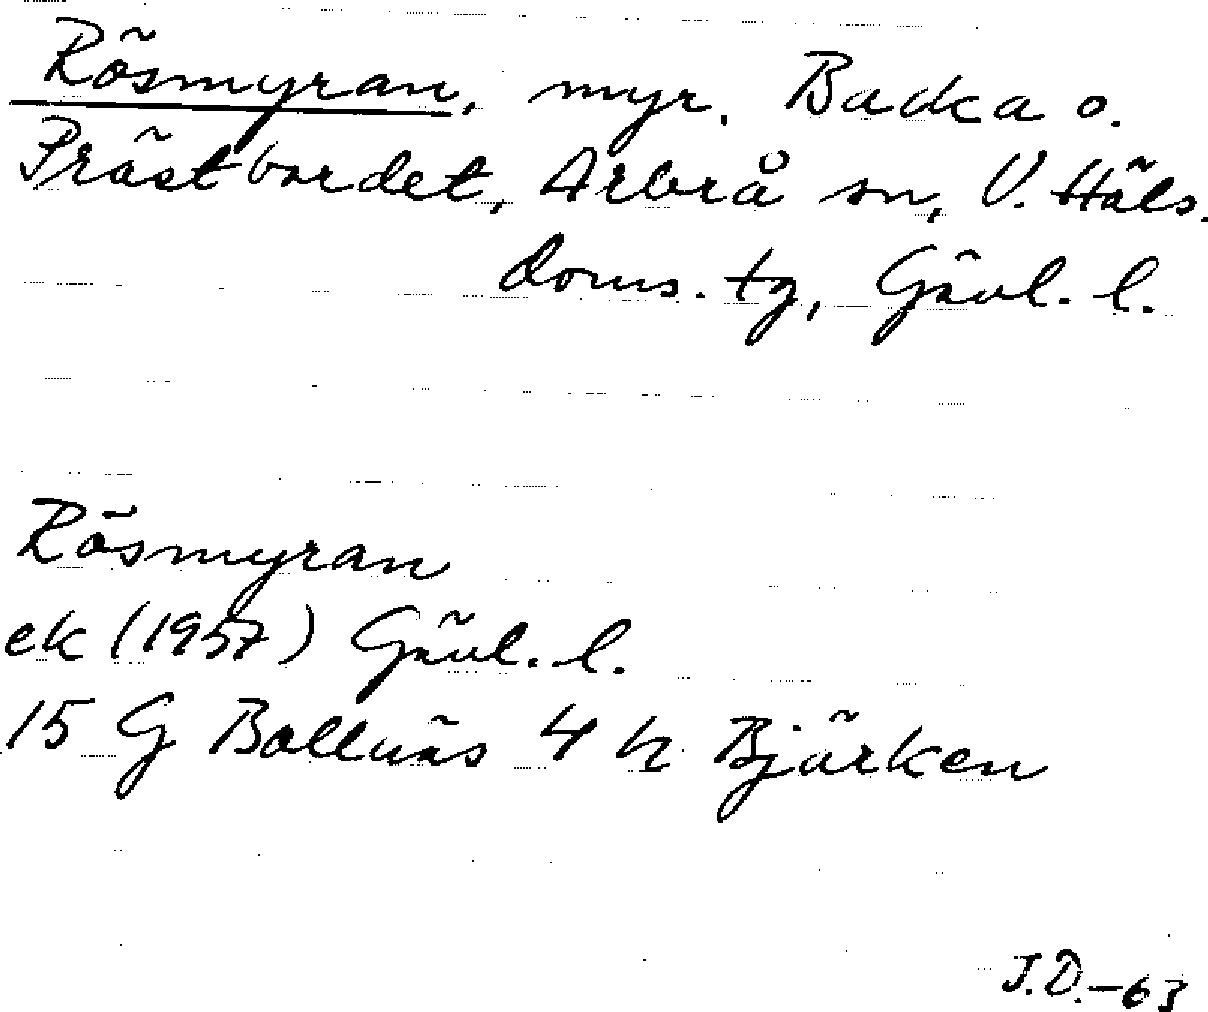 Rösmyran, myr. Backa o.
Prästbordet, Arbrå sn, V. Häls.
doms. tg, Gävl. l.
Rösmyran
ek (1957) Gävl. l.
15 G Bollnäs 4 h Björken
J.D.-63